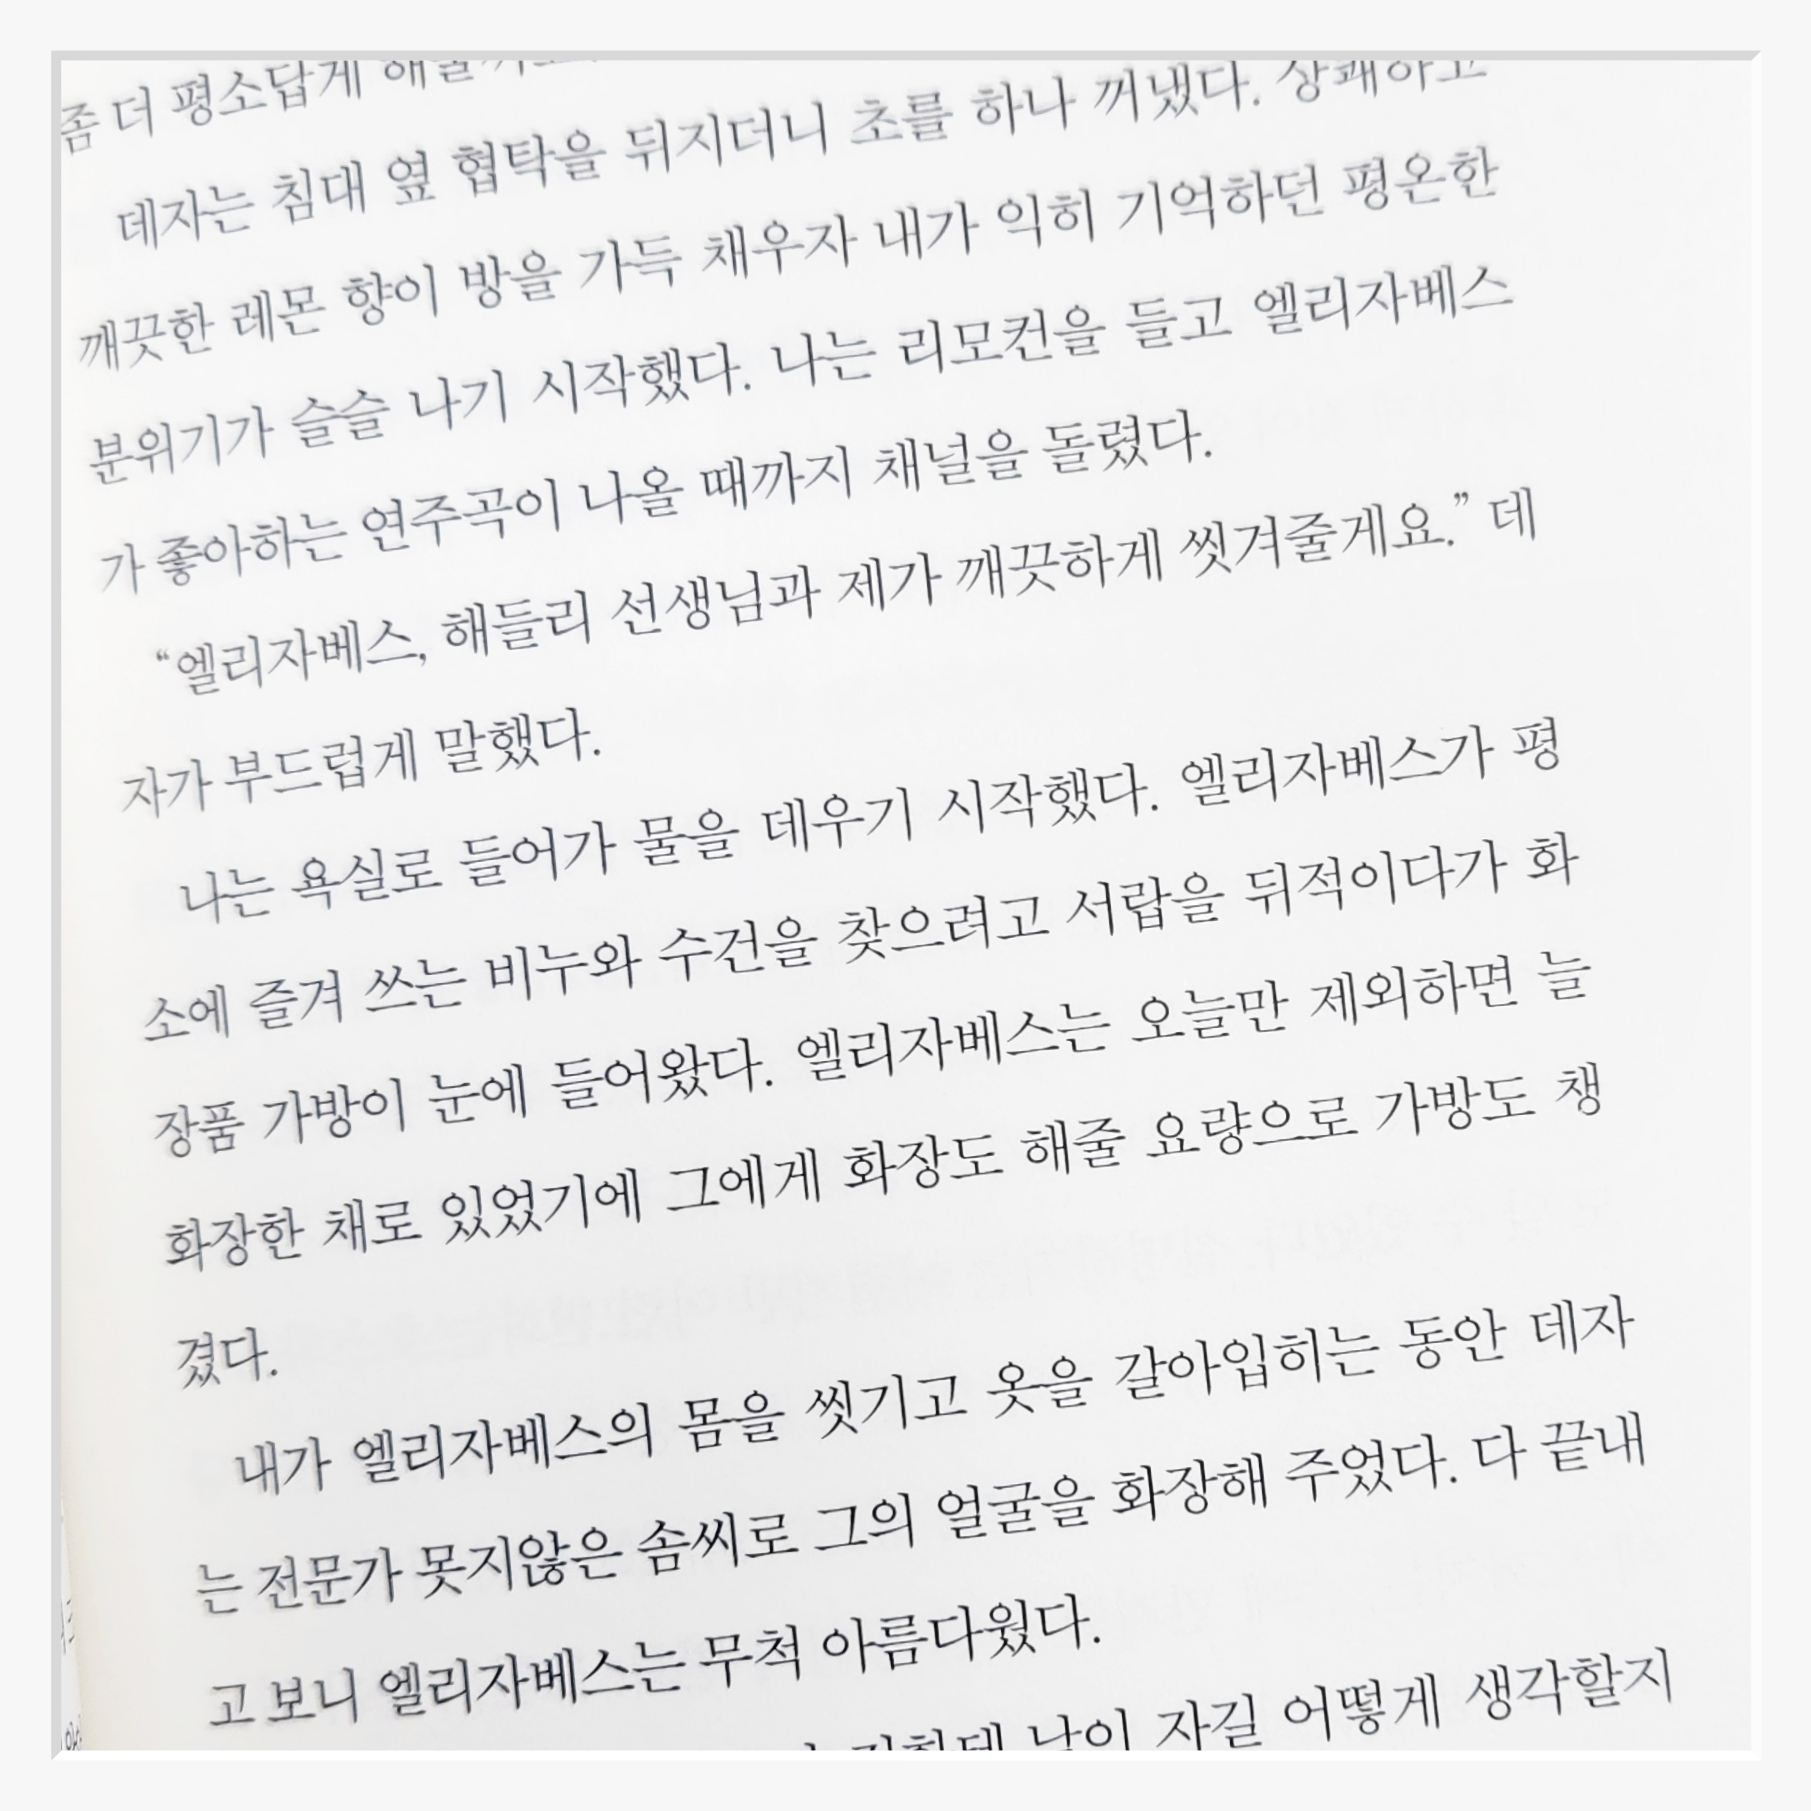 좀 더 평소답게
데자는 침대 옆 협탁을 뒤지더니 초를 하나 꺼냈다. 상쾌하고
깨끗한 레몬 향이 방을 가득 채우자 내가 익히 기억하던 평온한
분위기가 슬슬 나기 시작했다. 나는 리모컨을 들고 엘리자베스
가 좋아하는 연주곡이 나올 때까지 채널을 돌렸다.
“엘리자베스, 해들리 선생님과 제가 깨끗하게 씻겨줄게요.” 데
자가 부드럽게 말했다.
나는 욕실로 들어가 물을 데우기 시작했다. 엘리자베스가 평
소에 즐겨 쓰는 비누와 수건을 찾으려고 서랍을 뒤적이다가 화
장품 가방이 눈에 들어왔다. 엘리자베스는 오늘만 제외하면 늘
화장한 채로 있었기에 그에게 화장도 해줄 요량으로 가방도 챙
겼다.
내가 엘리자베스의 몸을 씻기고 옷을 갈아입히는 동안 데자
는 전문가 못지않은 솜씨로 그의 얼굴을 화장해 주었다. 다 끝내
고 보니 엘리자베스는 무척 아름다웠다.
남이 자길 어떻게 생각할지